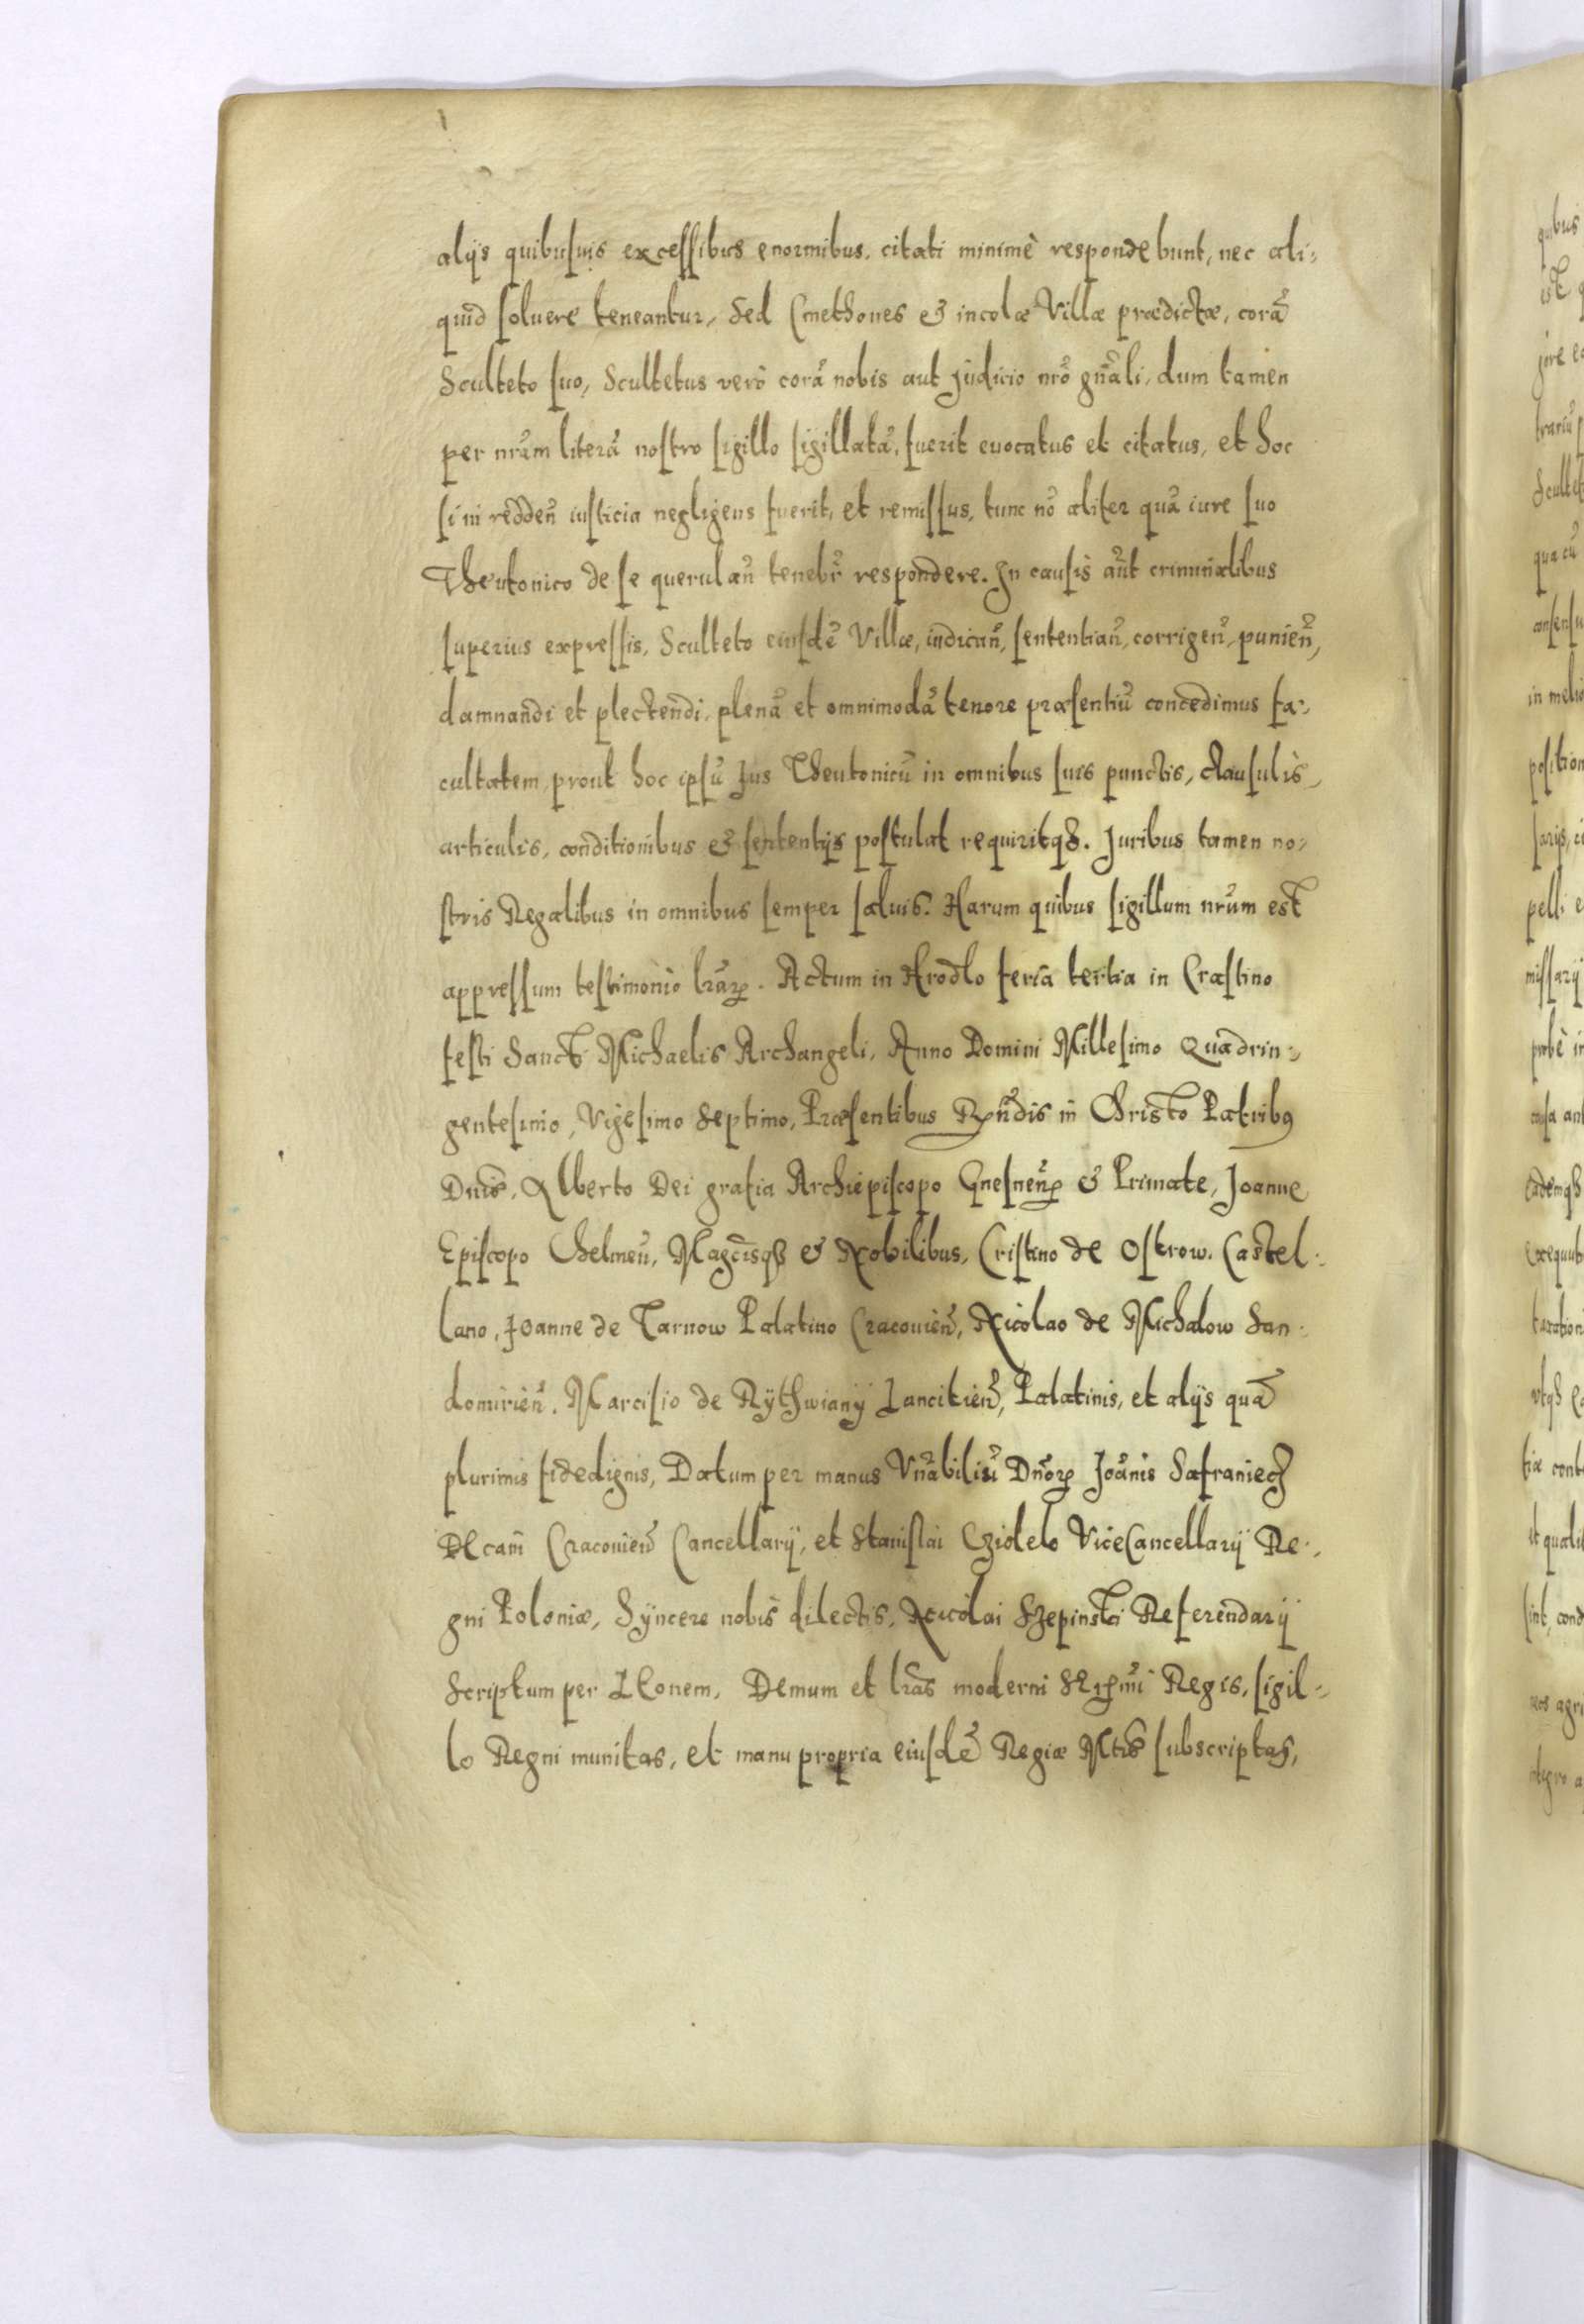 alijs quibusuis excessibus enormibus, citati minimè respondebunt, nec ali-
quid soluere teneantur, Sed Cmethones & incolæ Villæ prædictæ, corã
Sculteto suo, Scultetus verò corã nobis aut Judicio nrõ gnãli, dum tamen
per nrãm literã nostro sigillo sigillatã, fuerit euocatus et citatus, et hoc
si in redden̄ iusticia negligens fuerit, et remissus, tunc nõ aliter quã iure suo
Theutonico de se querulan̄ tenebr̃ respondere. In causis aũt criminalibus
superius expressis, Sculteto eiusdẽ Villæ, iudican̄, sententian̄, corrigen̄, punien̄,
damnandi et plectendi, plenã et omnimodã tenore præsentiũ concedimus fa-
cultatem, prout hoc ipsũ Jus Theutonicũ in omnibus suis punctis, clausulis,
articulis, conditionibus & sententijs postulat requiritqȝ. Juribus tamen no-
stris Regalibus in omnibus semper saluis. Harum quibus sigillum nrũm est
appressum testimonio lrãrꝝ. Actum in Hrodlo feria tertia in Crastino
festi Sancti Michaelis Archangeli, Anno Domini Millesimo Quadrin-
gentesimo, Vigesimo Septimo, Præsentibus Rṽndis in Christo Patribꝰ
Dnis, Alberto Dei gratia Archiepiscopo Gnesnen̄ꝝ & Primate, Joanne
Episcopo Chelmen̄, Magcisqȝ & Nobilibus, Cristino de Ostrow. Castel-
lano, Joanne de Tarnow Palatino Cracouien̄, Nicolao de Michalow San-
domirien̄, Marcisio de Rÿthwianÿ Lancitien̄, Palatinis, et alijs quã
plurimis fidedignis, Datum per manus Vñabiliũ Dnõrꝝ Joãnis Safraniecz
Decani Cracouien̄ Cancellarij, et Stanislai Cziolelo ViceCancellarij Re-
gni Poloniæ, Sÿncere nobis dilectis, Nicolai Szepinski Referendarij
Scriptum per LConem, Demum et lrãs moderni Serꝫmi Regis, sigil-
lo Regni munitas, et manu propria eiusdẽ Regiæ Mtis subscriptas,